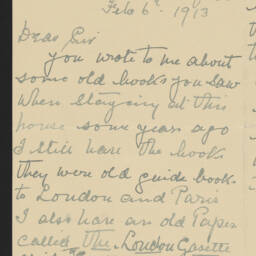 Feb 6th 1913
Dear Sir
you wrote to me about
some old books you saw
when staying at this
house some years ago
I still have the books
they were old guide books
to London and Paris
I also have an old Paper
called The London Gazette